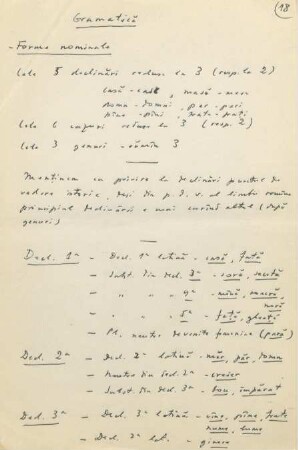 18
Gramatică
- Forme nominale
Cele 5 declinări reduse la 3 (resp. la 2)
casă - case, masă - mese
- pari
pîne - pîni, frate - frați
Cele 6 cazuri reduse la 3 (resp. 2)
Cele 3 genuri - rămîn 3
Menținem cu privire la declinări punctul de
vedere istoric, deși din p. d. v. al limbii române
principiul declinării e mai curînd altul (după
genuri)
Decl. 1ª - Decl. 1ª latină - casă, fată
- Subst. din decl. 3ª - sară,
- " " " 4ª - mînă,
noră
- " " " 5ª - față, gheață
- Pl. neutre devenite feminine (pară)
Decl. 2ª - Decl. 2ª latină - măr, păr,
- Neutre din decl. 2ª - creier
- Subst. din decl. 3ª - bou, împărat
Decl. 3ª - Decl. 3ª latină - cîne, pîne, frate
nume, lume
- Decl. 2ª lat. -